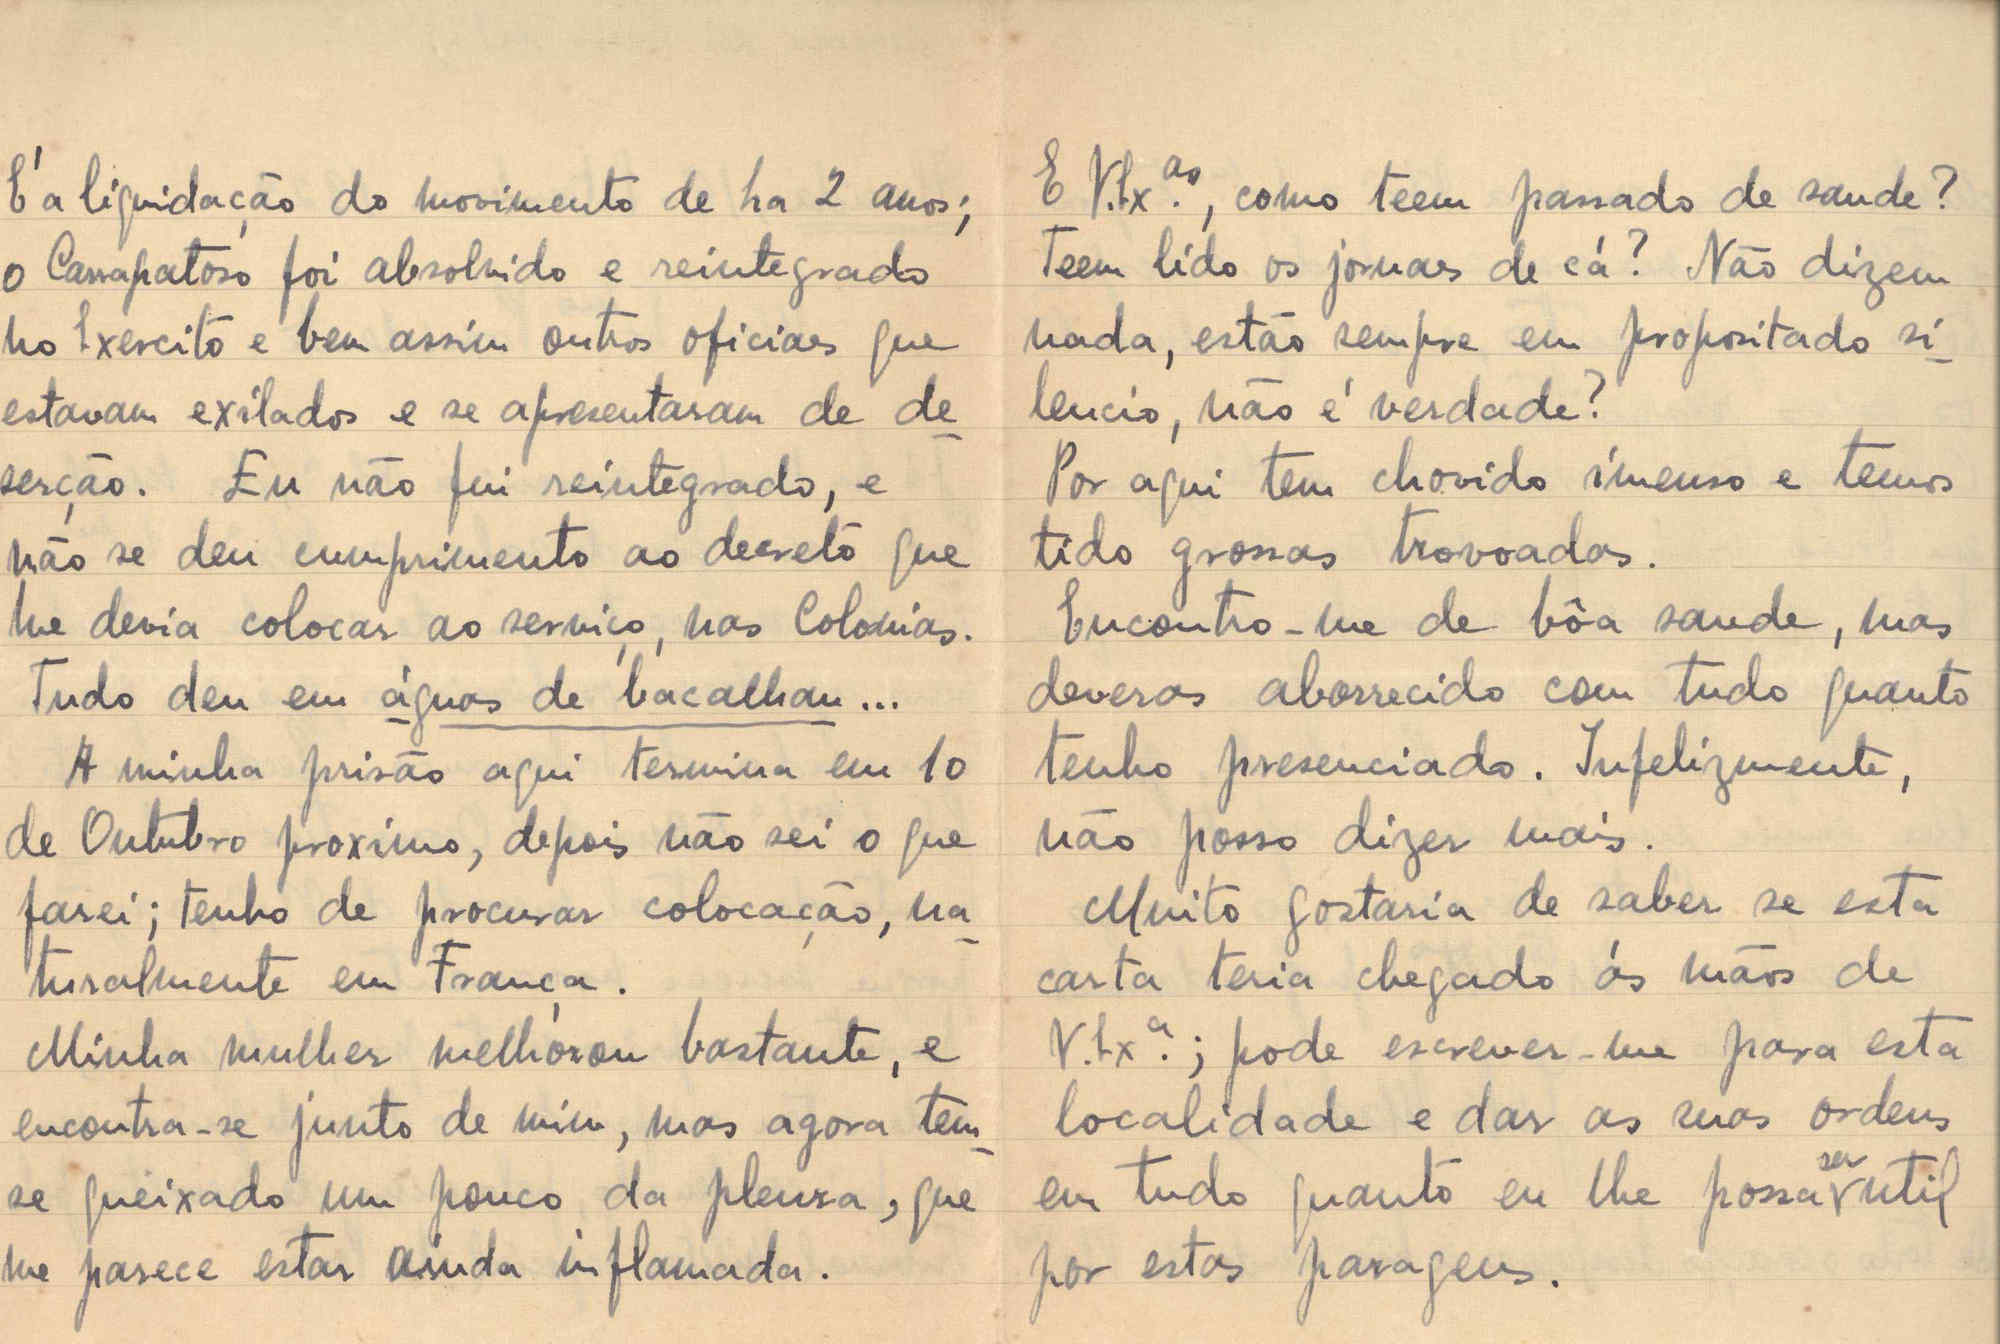 E' a liquidação do movimento de ha 2 anos;
o Carrapatoso foi absolvido e reintegrado
no Exercito e bem assim outros oficiaes que
estavam exilados e se apresentaram de de-
serção. Eu não fui reintegrado, e
não se deu cumprimento ao decreto que
me devia colocar ao serviço, nas Colonias.
Tudo deu em águas de bacalhau...
A minha prisão aqui termina em 10
de Outubro proximo, depois não sei o que
farei; tenho de procurar colocação, na-
turalmente em França.
Minha mulher melhorou bastante, e
encontra-se junto de mim, mas agora tem-
se queixado um pouco da pleura, que
me parece estar ainda inflamada.
E V. Exas., como teem passado de saude?
Teem lido os jornaes de cá? Não dizem
nada, estão sempre em propositado si-
lencio, não é verdade?
Por aqui tem chovido imenso e temos
tido grossas trovoadas.
Encontro-me de bôa saude, mas
deveras aborrecido com tudo quanto
tenho presenciado. Infelizmente,
não posso dizer mais.
Muito gostaria de saber se esta
carta teria chegado ás mãos de
V. Exa.; pode escrever-me para esta
localidade e dar as suas ordens
em tudo quanto eu lhe possa ser util
por estas paragens.